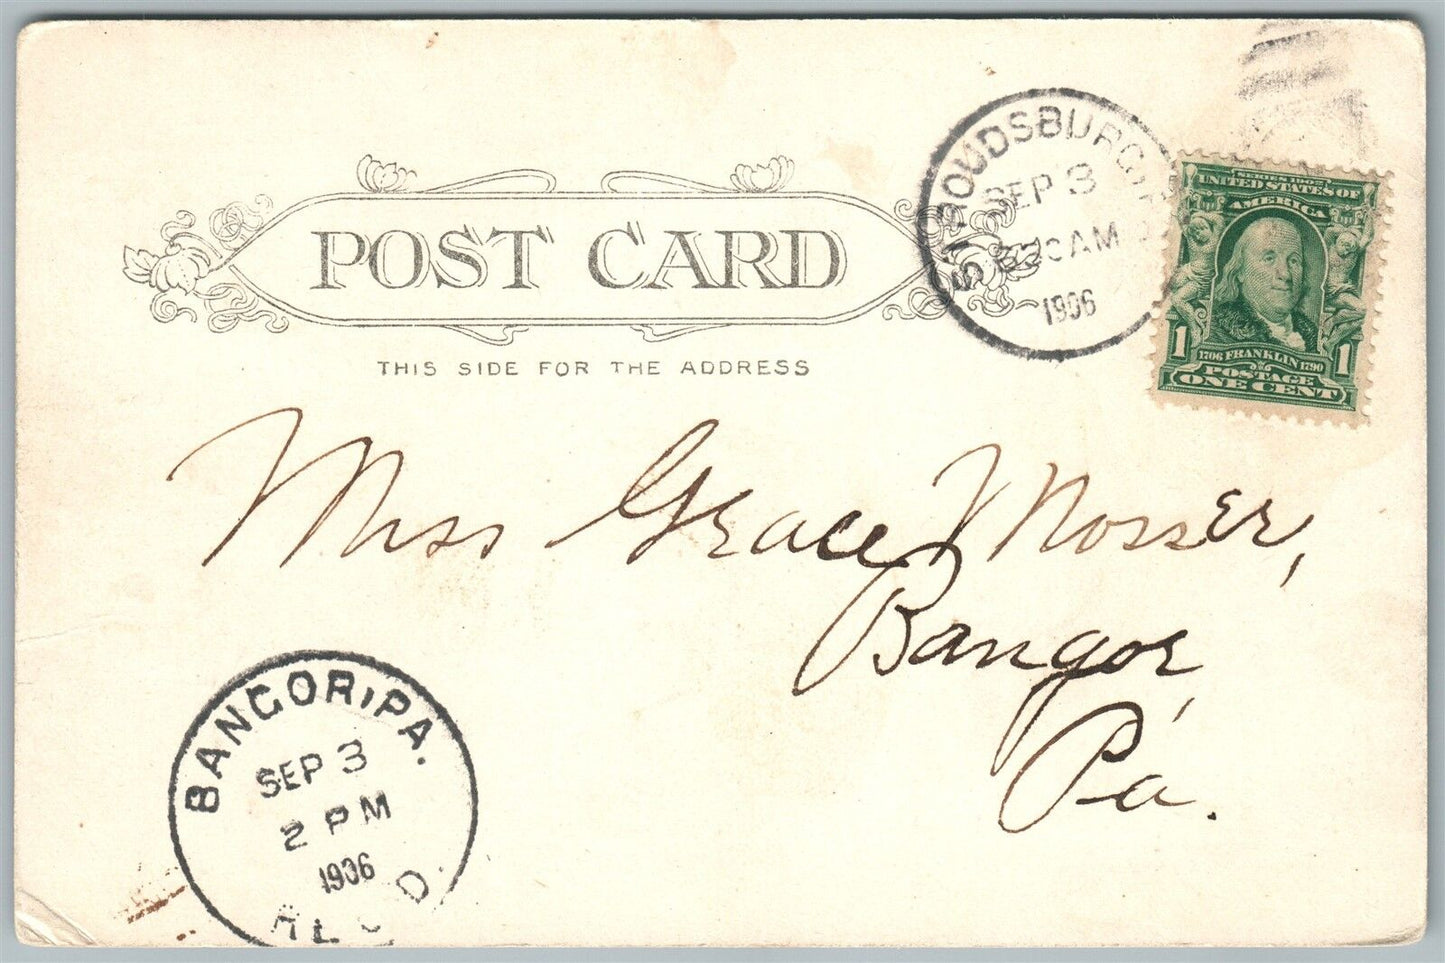 POST CARD
THIS SIDE FOR THE ADDRESS
STROUDSBURG, PA.
SEP 3
AM
1906
SERIES 1902
UNITED STATES OF
AMERICA
1 1
1706 FRANKLIN 1790
POSTAGE
ONE CENT
Miss Grace V Mosser,
Bangor,
Pa.
BANGOR, PA.
SEP 3
2 PM
1906
REC'D.